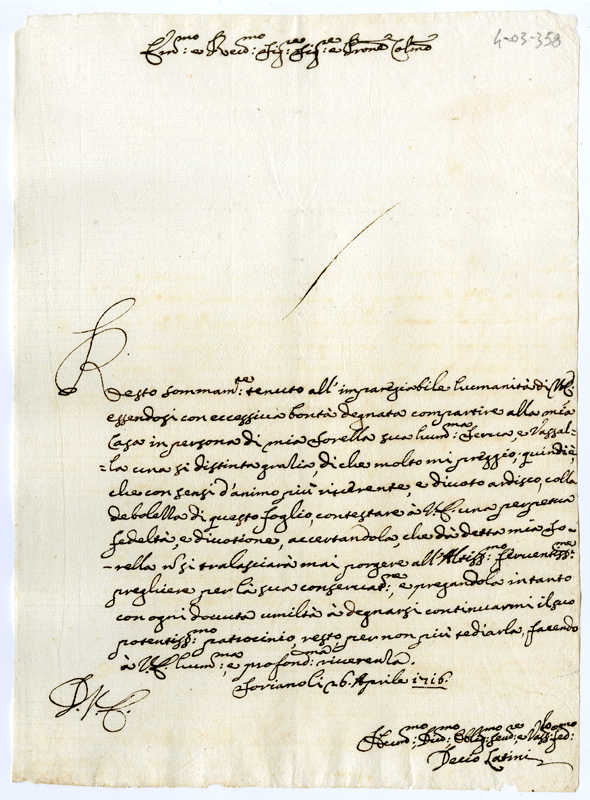 Em:mo e Rev:mo Sig:re Sig:re e Prone Colmo
4-03-358
Resto sommam:te tenuto all'impareggiabile humanità di V.E.
essendosi con eccessiva bontà degnata compartire alla mia
Casa in persona di mia sorella sua hum:ma serva, e Vassal-
=la una sì distinta gratia, di che molto mi preggio; quindi è,
che con sensi d'animo più riverente, e divoto ardisco, colla
debolezza di questo foglio, contestare à V.E. una perpetua
fedeltà, e divotione, accertandola, che dà detta mia so-
-rella nò si tralascierà mai porgere all'Altiss:mo ferventiss:me
preghiere per là sua conservat:ne, e pregandola intanto
con ogni dovuta umiltà à degnarsi continuarmi il suo
potentiss:mo patrocinio, resto per non più tediarla, facendo
à V.E. hum:ma, e profond:ma riverenza.
Soriano li 26. Aprile 1716.
D. V. E.
Hum:mo Dev:mo Oblig:mo serv:re e Vass:
Decio Latini